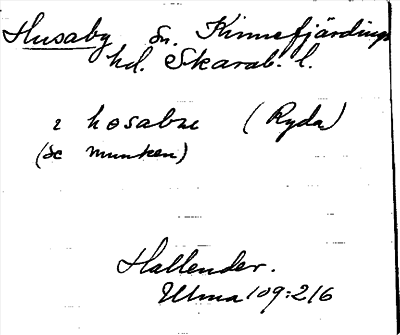 Husaby sn. Kinnefjärdings
hd. Skarab. l.
i hosabæ (Ryda)
(sc munken)
Hallender.
Ulma 109:216